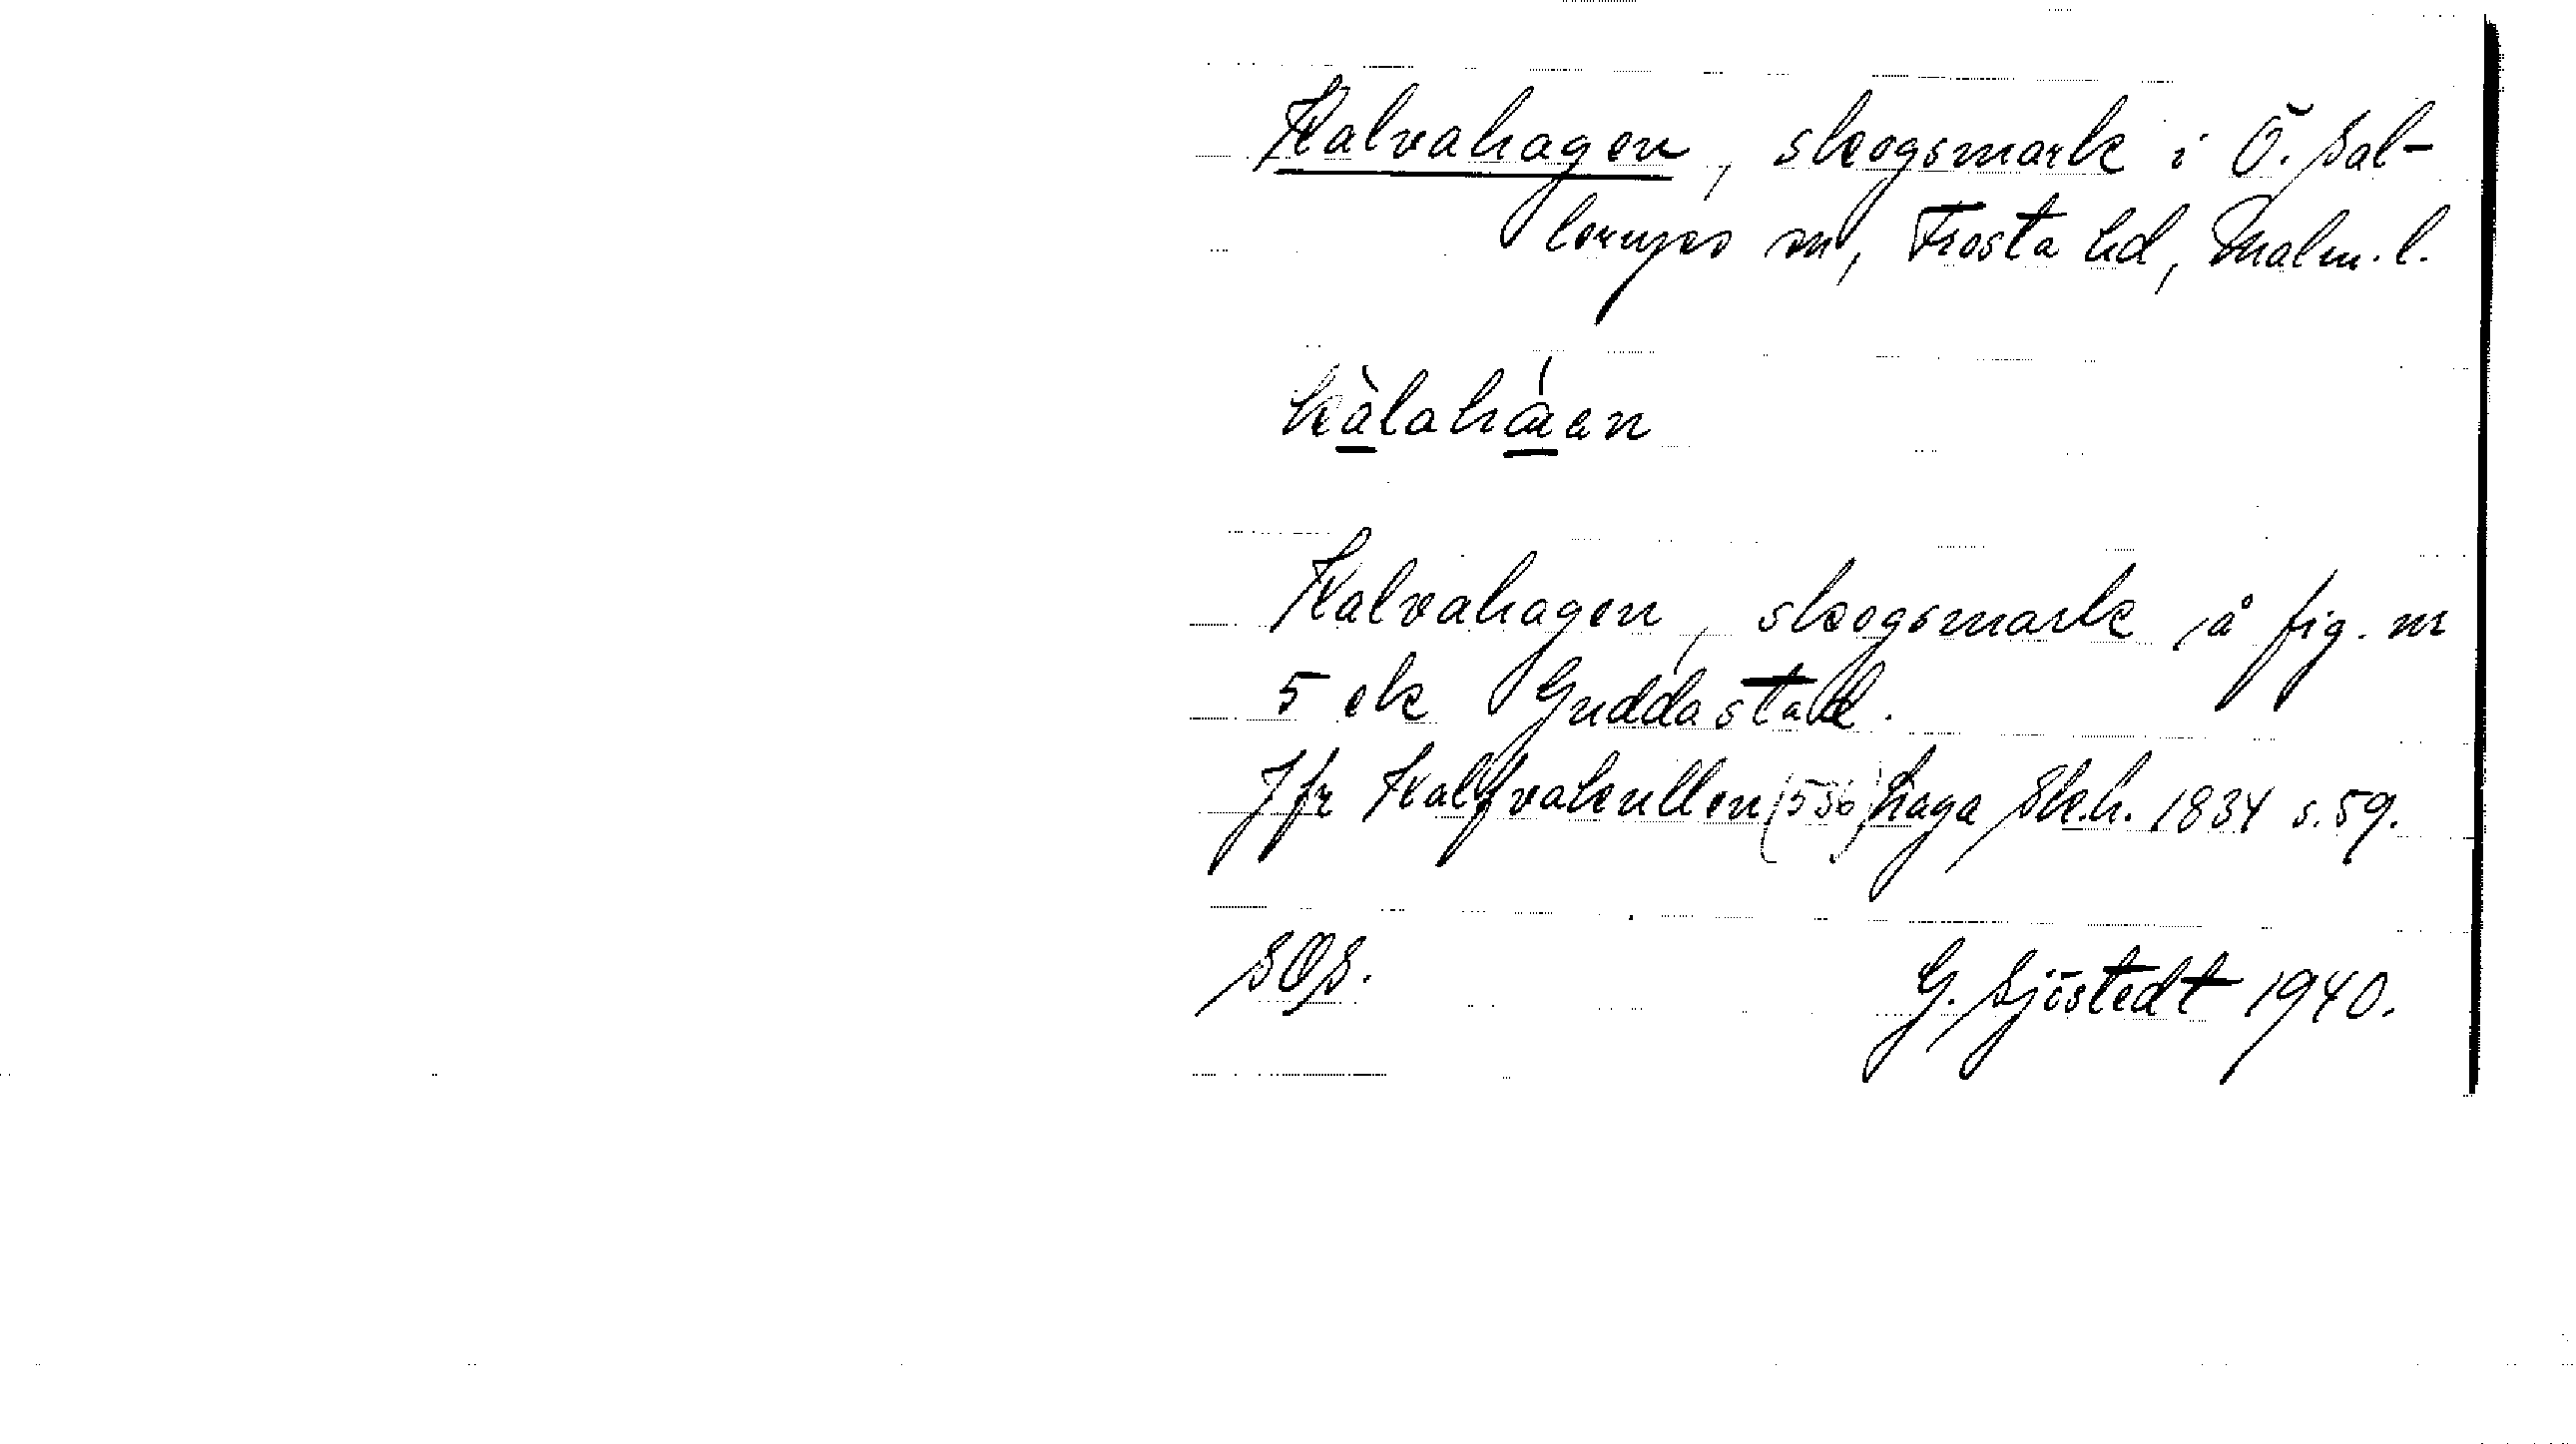 Kalvahagen, skogsmark i Ö. Sal-
lerups sn, Frosta hd, Malm. l.
kàlaháen
Kalvahagen, skogsmark å fig. nr
5 ek Guddastad.
Jfr Kalfvakullen (536) haga Sk.h. 1834 s. 59.
SOS. G. Sjöstedt 1940.